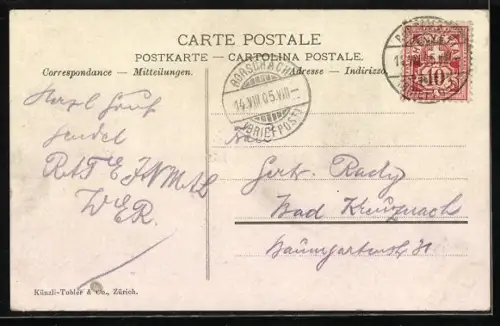 CARTE POSTALE
POSTKARTE – CARTOLINA POSTALE.
Correspondance – Mitteilungen.
Adresse – Indirizzo
RORSCHACH
14.VIII.05.VIII
(BRIEFPOST)
10
Herzl. Gruss
sendet
WER.
Rady
Bad Kreuznach
Künzli-Tobler & Co., Zürich.